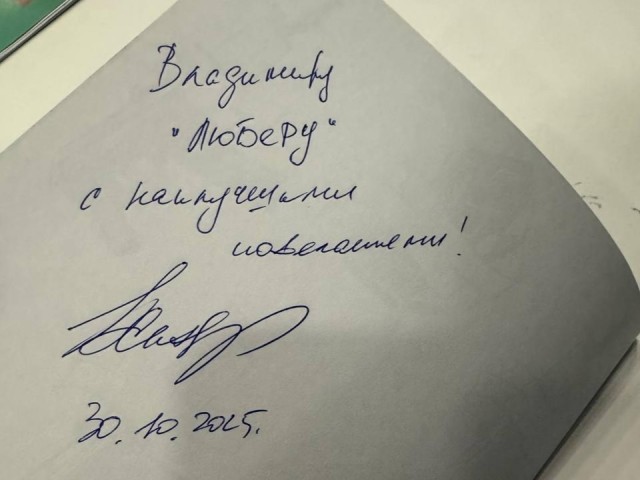 Владимиру
"Люберу"
с наилучшими
пожеланиями!
30.10.2025.